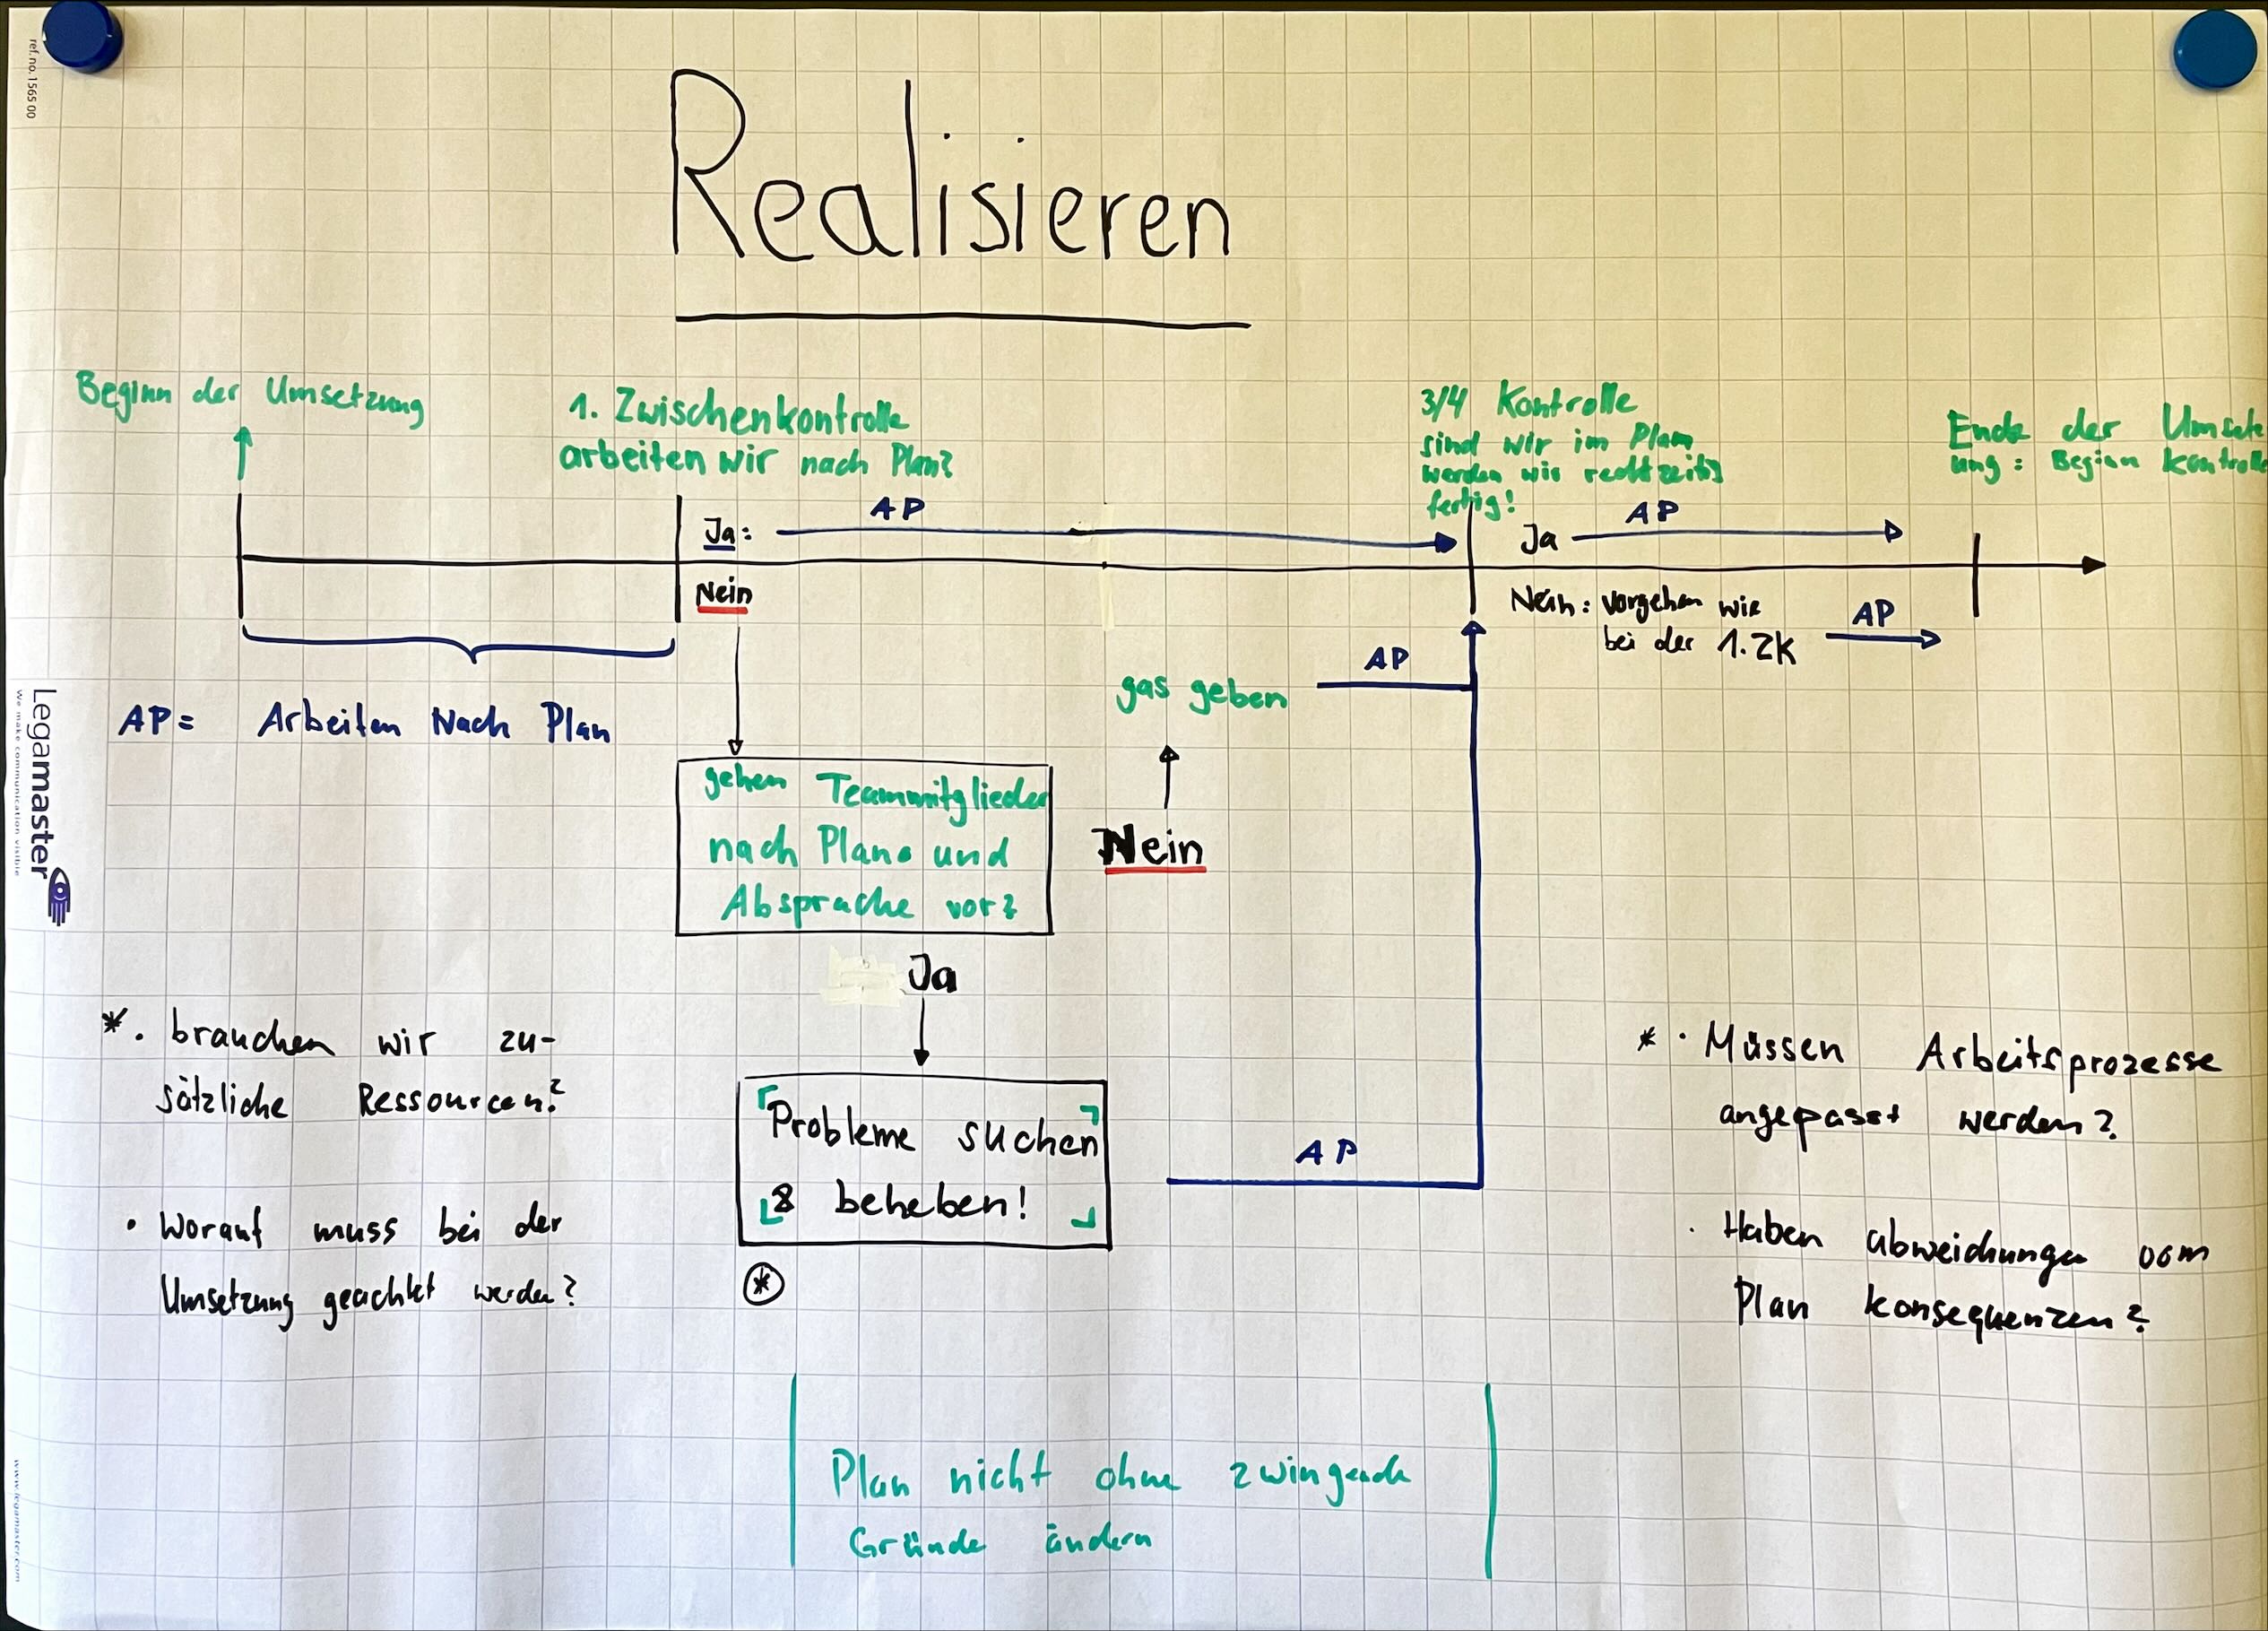 ref.no.1565 00
Realisieren
Beginn der Umsetzung
1. Zwischenkontrolle
arbeiten wir nach Plan?
3/4 Kontrolle
sind wir im Plan
werden wir rechtzeitig
fertig!
Ende der Umsetz
ung: Beginn Kontrolle
Ja:
AP
Ja
AP
Nein
Nein: vorgehen wie
bei der 1. ZK
AP
AP = Arbeiten Nach Plan
gas geben
AP
gehen Teammitglieder
nach Plan und
Absprache vor?
Nein
Ja
Probleme suchen
& beheben!
*
AP
* · brauchen wir zu-
sätzliche Ressourcen?
· Worauf muss bei der
Umsetzung geachtet werden?
* · Müssen Arbeitsprozesse
angepasst werden?
· Haben abweichungen vom
Plan konsequenzen?
Plan nicht ohne zwingende
Gründe ändern
Legamaster
we make communication visible
www.legamaster.com